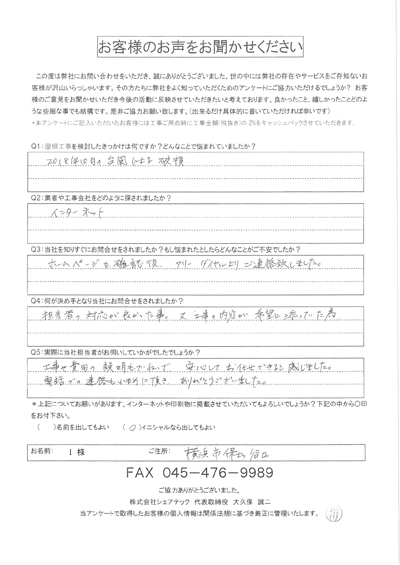 お客様のお声をお聞かせください
この度は弊社にお問い合わせをいただき、誠にありがとうございました。世の中には弊社の存在やサービスをご存知ないお
客様が沢山いらっしゃいます。その方たちに弊社をよく知っていただくためのアンケートにご協力いただけるでしょうか? お客
様のご意見をお聞かせいただき今後の活動に反映させていただきたいと考えております。良かったこと、嬉しかったことどのよ
うな些細な事でも結構です。是非ご協力お願い致します。(出来るだけ具体的に書いていただければ幸いです)
*本アンケートにご記入いただいたお客様には工事ご用命時に工事金額(税抜き)の2%をキャッシュバックさせていただきます。
Q1:屋根工事を検討したきっかけは何ですか?どんなことで悩まれていましたか?
2018年10月の台風による破損
Q2:業者や工事会社をどのように探されましたか?
インターネット
Q3:当社を知りすぐにお問合せをされましたか?もし悩まれたとしたらどんなことがご不安でしたか?
ホームページを確認後、フリーダイヤルよりご連絡致しました。
Q4:何が決め手となり当社にお問合せをされましたか?
担当者の対応が良かった事。又工事の内容が希望に添っていた為
Q5:実際に当社担当者がお伺いしていかがでしたでしょうか?
工事や費用の説明もていねいで 安心してお任せできると感じました。
電話での連絡もこまめに頂き、ありがとうございました。
*上記についてお願いがあります。インターネットや印刷物に掲載させていただいてもよろしいでしょうか?下記の中から○印
をお付下さい。
( )名前を出してもよい (○)イニシャルなら出してもよい
お名前: I 様 ご住所: 横浜市保土ヶ谷区
FAX 045-476-9989
ご協力ありがとうございました。
株式会社シェアテック 代表取締役 大久保 誠二
当アンケートで取得したお客様の個人情報は関係法規に基づき厳正に管理いたします。